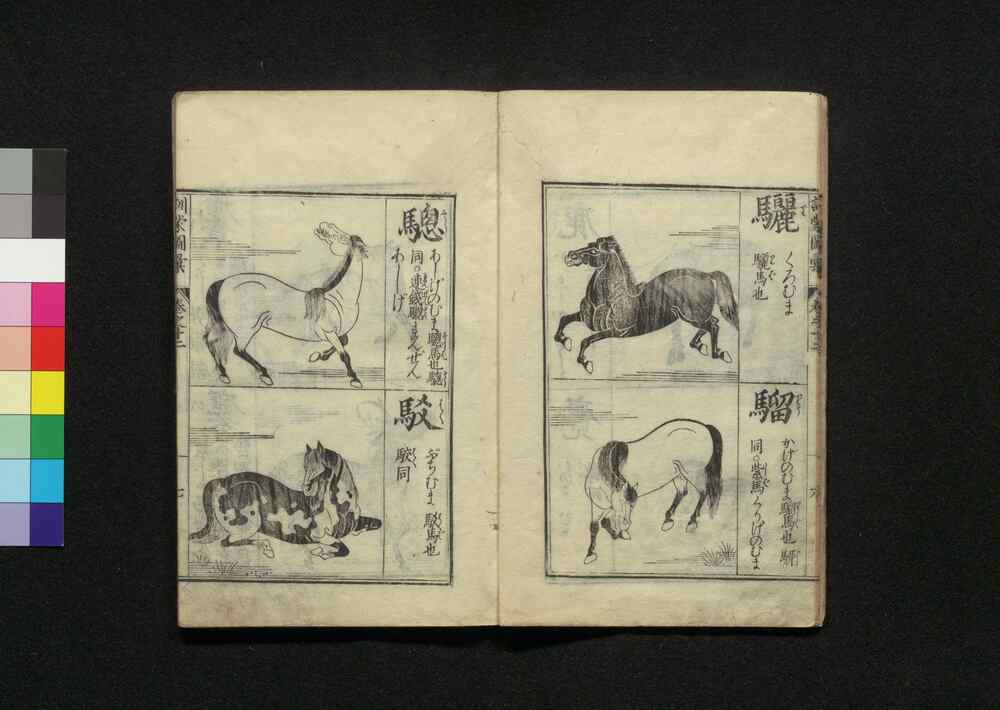 驪
くろむま
驪馬也
騮
かげのむま騮馬也
同紫馬くりげのむま
驄
あしげのむま驄馬也
同連錢驄れんぜん
あしげ
駁
ぶちむま 駁馬也
駮同
訓蒙圖彙